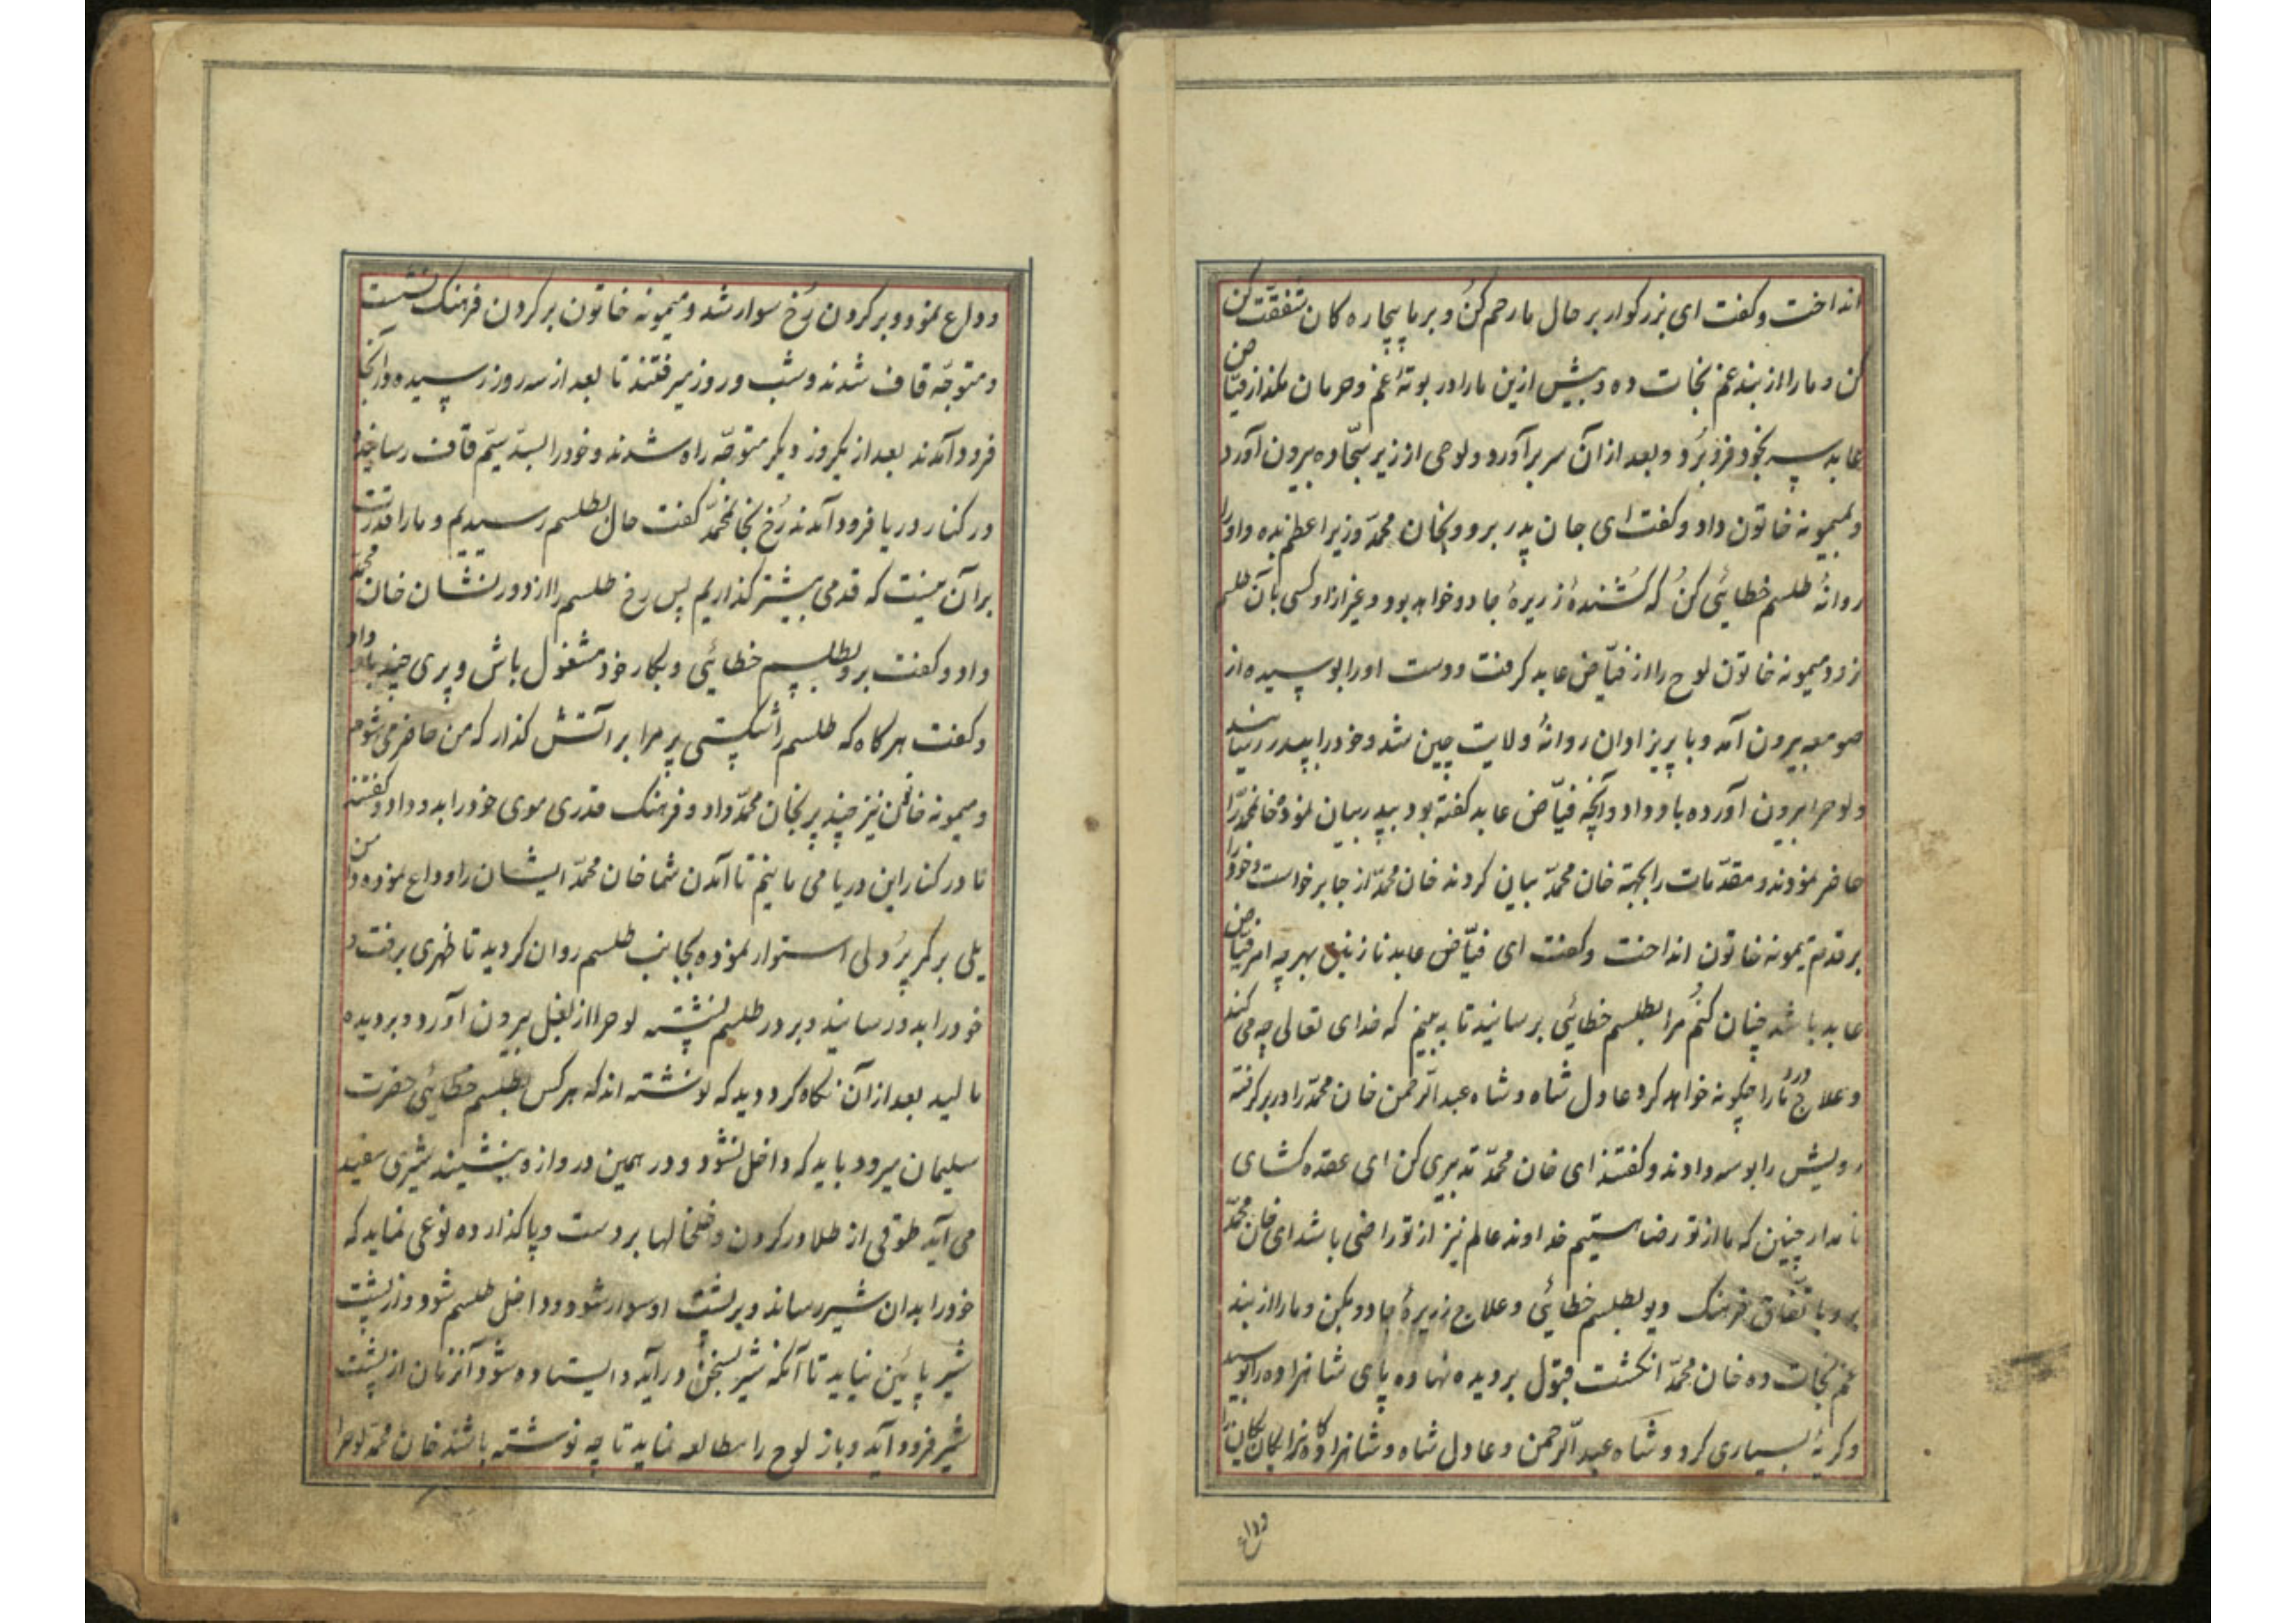 انداخت و کفت ای بزرکوار بر حال ما رحم کن و بر ما بیچاره کان شفقت کن
کن و ما را از بند غم نجات ده و بیش ازین ما را در بوتهٔ غم و حرمان مکذار فیّاض
عابد سر بخود فرو برد و بعد از آن سر بر آورد و لوحی از زیر سجّاده بیرون آورد
و بمیمونه خاتون داد و کفت ای جان پدر برو و بخان محمّد وزیر اعظم بده و او را
روانهٔ طلسم خطائی کن که کشندهٔ زریرهٔ جادو خواهد بود و غیر از او کسی بآن طلسم
نرود میمونه خاتون لوح را از فیّاض عابد کرفت و دست او را بوسیده از
صومعه بیرون آمد و با پریزاوان روانهٔ ولایت چین شد و خود را بپدر رسانید
و لوحرا بیرون آورده باو داد و آنچه فیّاض عابد کفته بود بپدر بیان نمود خانمحمّد را
حاضر نمودند و مقدّمات را بجهتهٔ خان محمّد بیان کردند خان محمّد از جا برخواست و خود را
بر قدم میمونه خاتون انداخت و کفت ای فیّاض عابد نازنین بهر چه امر فیّاض
عابد باشد چنان کنم مرا بطلسم خطائی برسانید تا به بینم که خدای تعالی چه می کند
و علاج درد ما را چکونه خواهد کرد عادل شاه و شاه عبدالرّحمن خان محمّد را در بر کرفته
رویش را بوسه دادند و کفتند ای خان محمّد تدبیری کن ای عقده کشای
نامدار چنین که ما از تو رضا هستیم خداوند عالم نیز از تو راضی باشد ای خان محمّد
برو باتّفاق فرهنک دیو بطلسم خطائی و علاج زریرهٔ جادو بکن و ما را از بند
غم نجات ده خان محمّد انکشت قبول بر دیده نهاده پای شاهزاده را بوسید
و کریهٔ بسیاری کرد و شاه عبدالرّحمن و عادل شاه و شاهزاده کانرا یکان یکان را
وداع
و وداع نمود و بر کردن رخ سوار شد و میمونه خاتون بر کردن فرهنک نشست
و متوجّه قاف شدند و شب و روز میرفتند تا بعد از سه روز رسیده در آنجا
فرود آمدند بعد از یکروز دیکر متوجّه راه شدند و خود را بسدّ سیّم قاف رسانیدند
در کنار دریا فرود آمدند رخ بخانمحمّد کفت حال بطلسم رسیدیم و ما را قدرت
بر آن نیست که قدمی بیشتر کذاریم پس رخ طلسم را از دور نشان خان محمّد
داد و کفت برو بطلسم خطائی و بکار خود مشغول باش و پری چند باو داد
و کفت هر کاه که طلسم را شکستی پر مرا بر آتش کذار که من حاضر می شوم
و میمونه خاتون نیز چند پر بخان محمّد داد و فرهنک قدری موی خود را بدو داد و کفتند
تا در کنار این دریا می مانیم تا آمدن شما خان محمّد ایشان را وداع نموده دامن
یلی بر کمر پر دلی استوار نموده بجانب طلسم روان کردید تا ظهری برفت و
خود را بدو رسانید و بر در طلسم نشسته لوحرا از بغل بیرون آورد و بر دیده
مالید بعد از آن نکاه کرد دید که نوشته اند که هر کس بطلسم خطائی حضرت
سلیمان میرود باید که داخل نشود و در همین دروازه بنشیند شیری سفید
می آید طوقی از طلا در کردن و خلخالها بر دست و پا کذارده نوعی نماید که
خود را بدان شیر رساند و بر پشت او سوار شود و داخل طلسم شود و از پشت
شیر پائین نیاید تا آنکه شیر بسخن در آید و ایستاده شود آنزمان از پشت
شیر فرود آید و باز لوح را مطالعه نماید تا چه نوشته باشند خان محمّد لوحرا